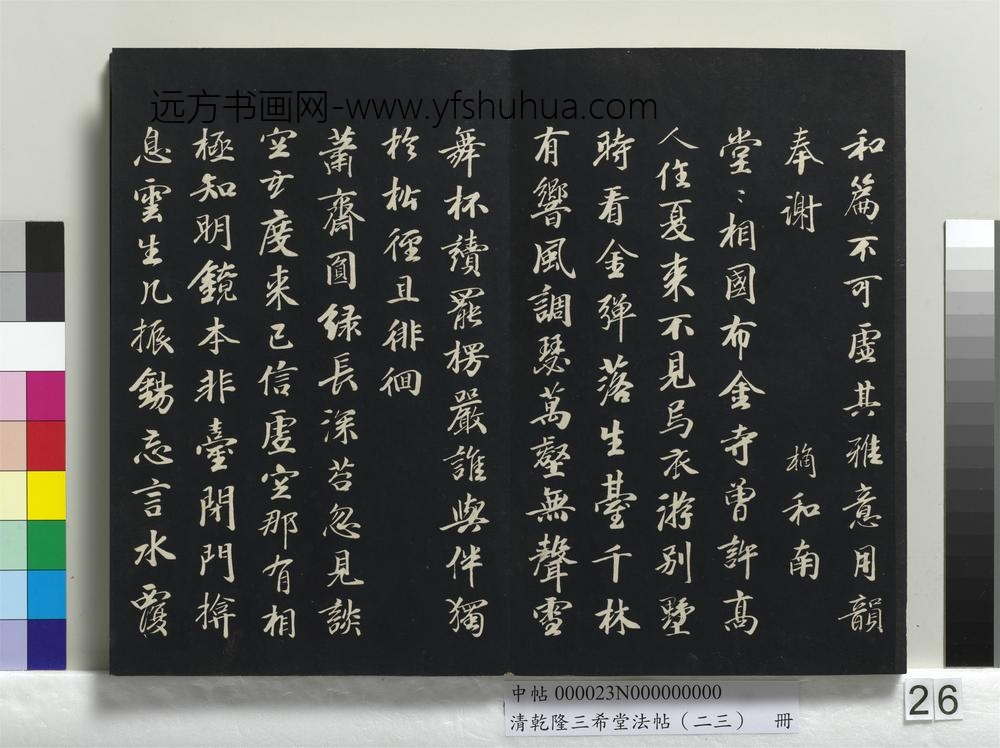 远方书画网-www.yfshuhua.com
和篇不可虛其雅意用韻
奉謝 楠和南
堂〻相國布金寺曾許高
人住夏来不見烏衣游別墅
時看金彈落生臺千林
有響風調瑟萬壑無聲雪
舞杯讀罷楞嚴誰與伴獨
於松徑且徘徊
蕭齋圓緑長深苔忽見談
空度来已信虛空那有相
極知明鏡本非臺閉門揜
息雲生几振錫忘言水覆
中帖 000023N000000000
清乾隆三希堂法帖（二三） 冊
26